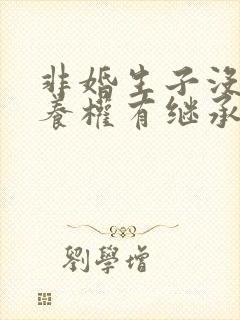 非婚生子没
养權有继承
劉學增